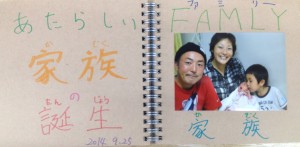 あたらしい
かぞく
家族
の
たんじょう
誕生
2014.9.25
ファミリー
FAMLY
かぞく
家族